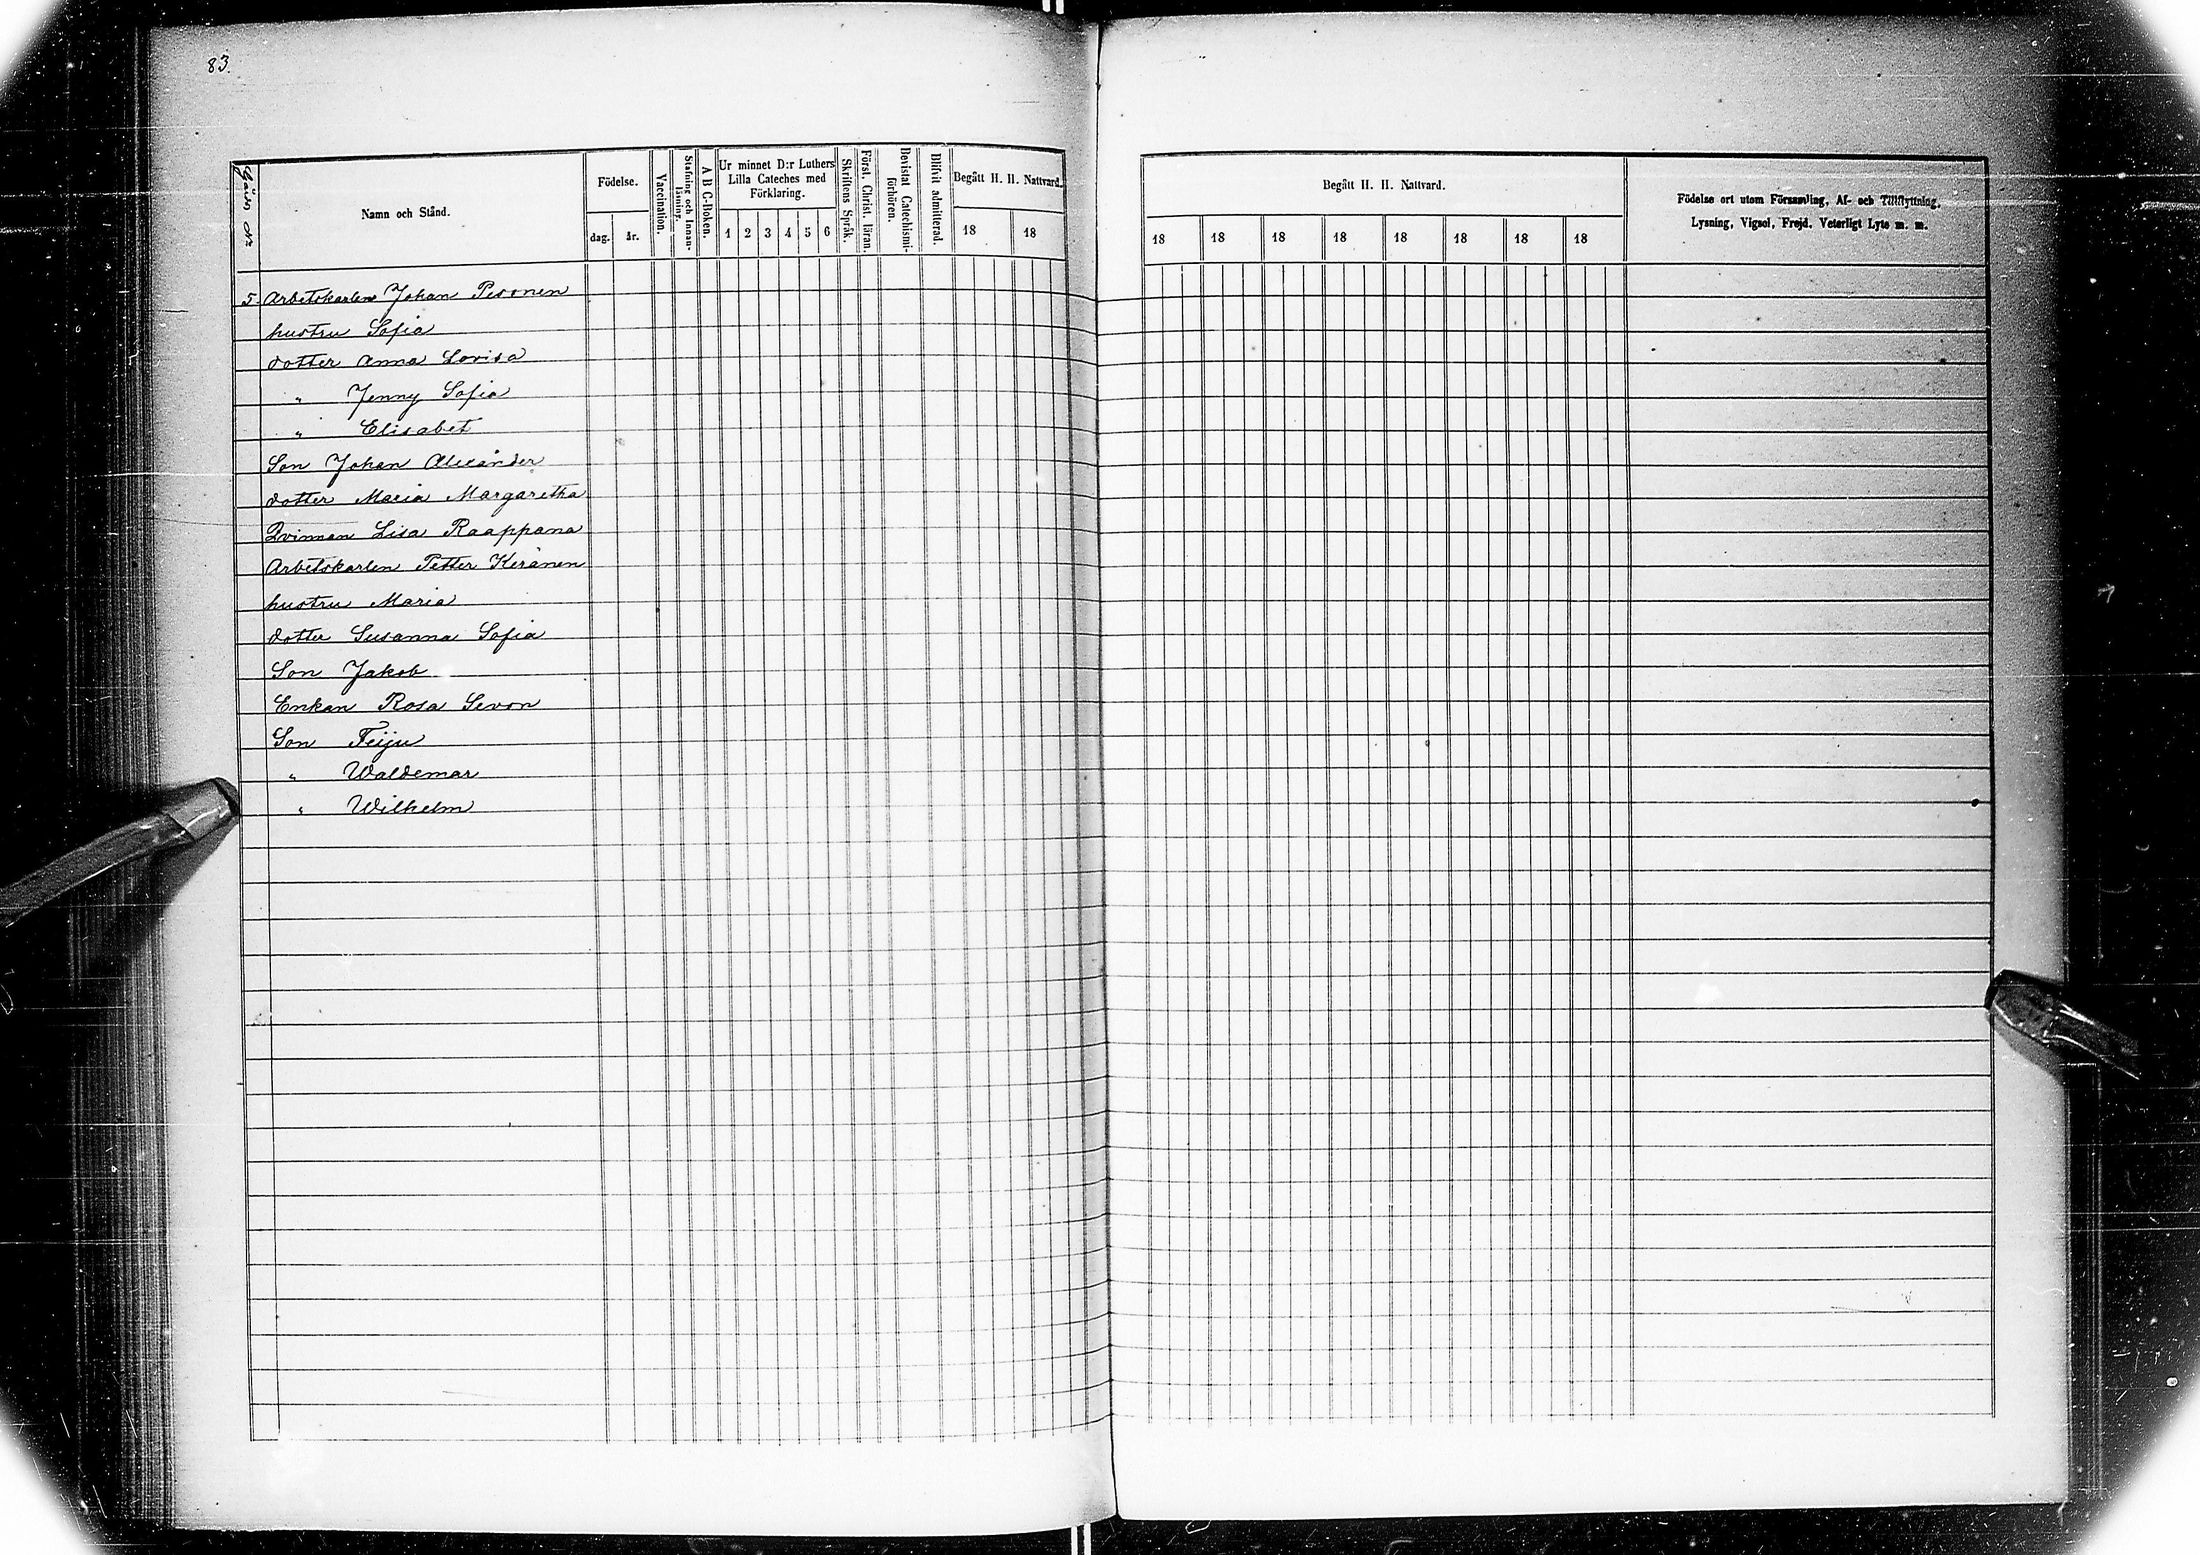 83.
Gårds No
Namn och Stånd.
Födelse.
dag.
år.
Vaccination.
Stafning och Innan-
läsning.
A B C-Boken.
Ur minnet D:r Luthers
Lilla Cateches med
Förklaring.
1 2 3 4 5 6
Skriftens Språk.
Först. Christ. läran.
Bevistat Catechismi-
förhören.
Blifvit admitterad.
Begått H. H. Nattvard.
18 18
Begått H. H. Nattvard.
18 18 18 18 18 18 18 18
Födelse ort utom Församling, Af- och Tillflyttning,
Lysning, Vigsel, Frejd, Veterligt Lyte m. m.
5. Arbetskarlen Johan Pesonen
hustru Sofia
dotter Anna Lovisa
" Jenny Sofia
" Elisabet
Son Johan Alexander
dotter Maria Margaretha
Qvinnan Lisa Raappana
Arbetskarlen Petter Keränen
hustru Maria
dotter Susanna Sofia
Son Jakob
Enkan Rosa Sevon
Son Feiju
" Waldemar
" Wilhelm